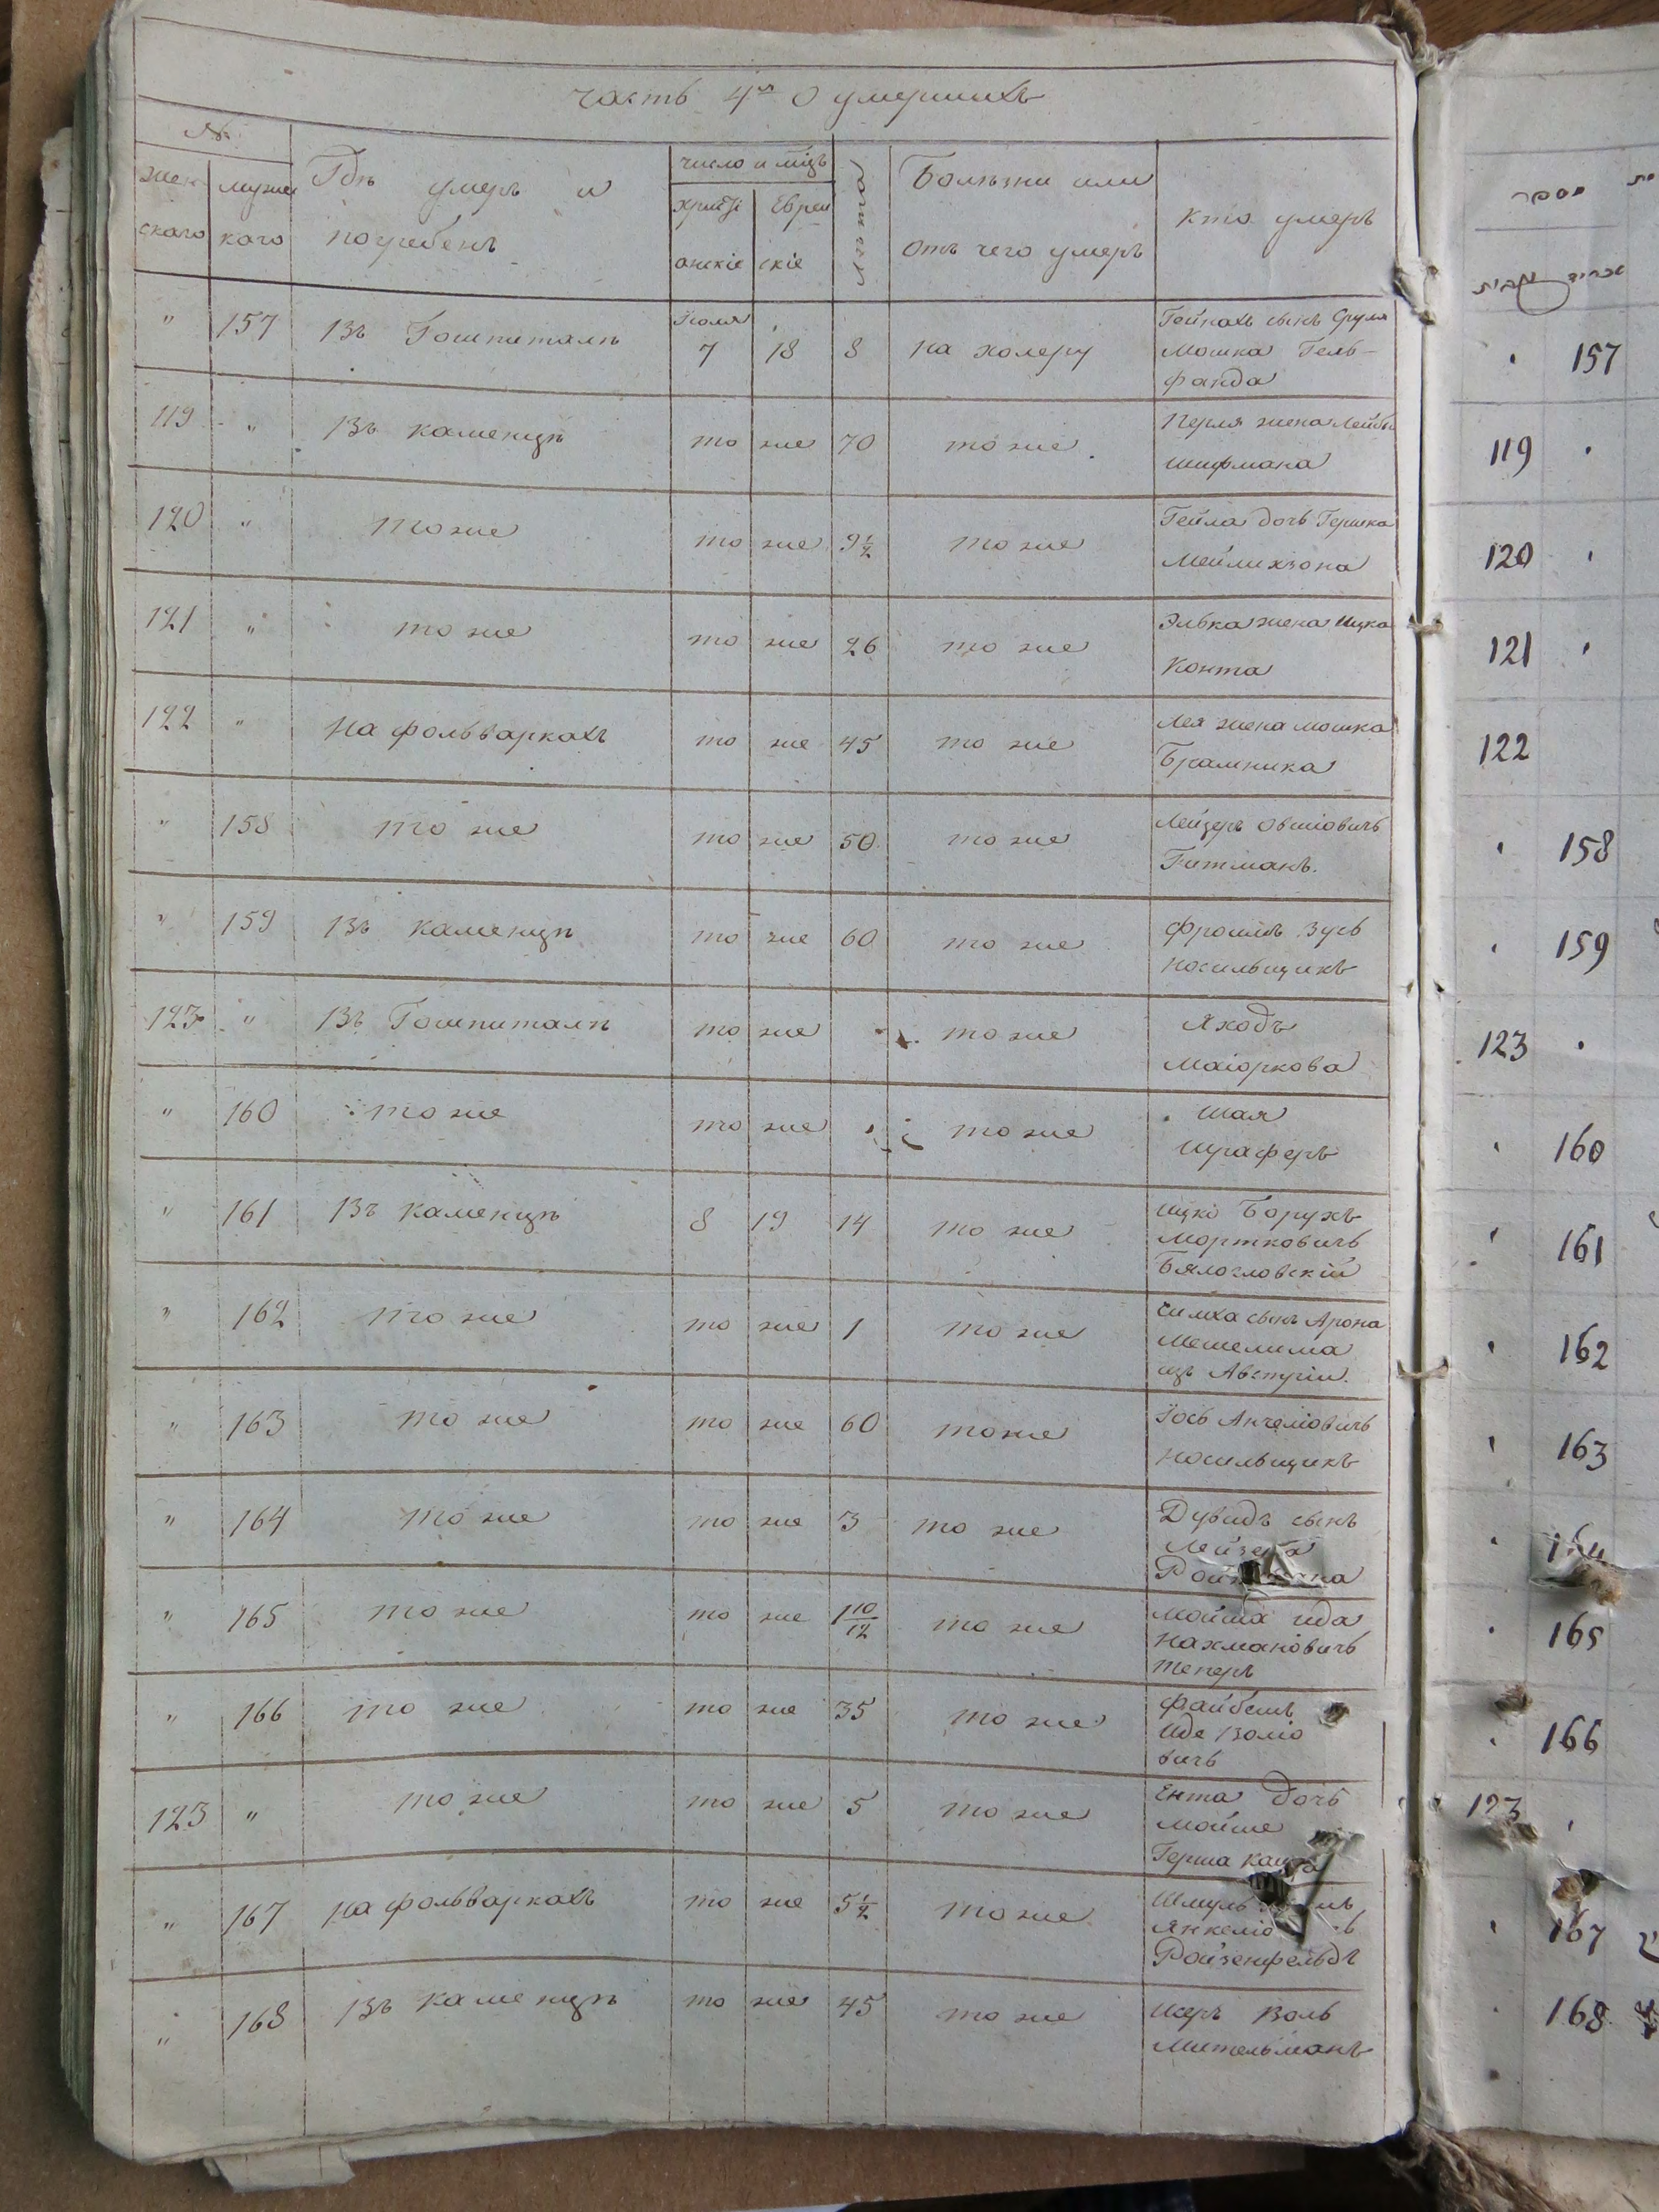 часть 4я о умершихъ
№
жен мужес
скаго каго
Гдѣ умеръ и
погребенъ
число и мѣцъ
христі Еврей
анскіе скіе
лѣта
Болѣзни или
отъ чего умеръ
кто умеръ
" 157 Въ Гошпиталѣ Іюля 7 18 8 на холеру Гейнахъ сынъ Сруля
Мошка Гель-
фанда
119 " Въ каменцѣ то же 70 тоже Перля жена Лейбы
Шифмана
120 " тоже то же 9½ тоже Гейла дочь Гершка
Мейлихзона
121 " то же то же 26 то же Элька жена Ицка
Конта
122 " на фольваркахъ то же 45 то же Лея жена мошка
Брамника
" 158 то же то же 50 то же Лейзеръ Овшіовичъ
Гитманъ.
" 159 Въ каменцѣ то же 60 то же Фроимъ Зусь
носильщикъ
123 " Въ Гошпиталѣ то же то же Яходъ
Маіоркова
" 160 то же то же то же Шая
Шраферъ
" 161 Въ каменцѣ 8 19 14 то же Ицко Борухъ
Мортковичъ
Бялогловскій
" 162 то же то же 1 то же Симха сынъ Арона
Мешелима
изъ Австріи.
" 163 то же то же 60 тоже Іось Анчеліовичъ
носильщикъ
" 164 то же то же 3 то же Дувидъ сынъ
Лейзера
" 165 то же то же 1 10/12 то же Мойша ида
Нахмановичъ
Теперъ
" 166 то же то же 35 то же Файбешъ
Иде Воліо
вичъ
123 " то же то же 5 то же Ента дочь
мойше
Герша
" 167 на фольваркахъ то же 5½ то же Шмуль
Ройзенфельдъ
" 168 Въ каменцѣ то же 45 то же Шеръ Воль
Мительманъ
מספר
157
119
120
121
122
158
159
123
160
161
162
163
165
166
123
167
168